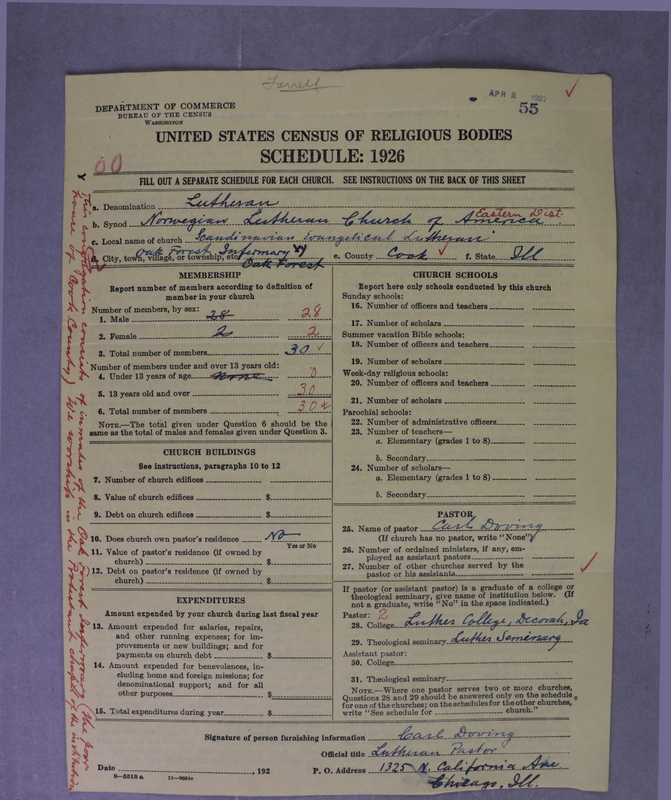 Farrell
APR 2 1927
55
DEPARTMENT OF COMMERCE
BUREAU OF THE CENSUS
WASHINGTON
UNITED STATES CENSUS OF RELIGIOUS BODIES
SCHEDULE: 1926
00
FILL OUT A SEPARATE SCHEDULE FOR EACH CHURCH. SEE INSTRUCTIONS ON THE BACK OF THIS SHEET
a. Denomination Lutheran
Eastern Dist.
b. Synod Norwegian Lutheran Church of America
c. Local name of church Scandinavian Evangelical Lutheran
Oak Forest Infirmary
d. City, town, village, or township, etc. Oak Forest e. County Cook f. State Ill
MEMBERSHIP
Report number of members according to definition of
member in your church
Number of members, by sex:
1. Male 28 28
2. Female 2 2
3. Total number of members 30
Number of members under and over 13 years old:
4. Under 13 years of age none 0
5. 13 years old and over 30
6. Total number of members 30
NOTE.—The total given under Question 6 should be the
same as the total of males and females given under Question 3.
CHURCH BUILDINGS
See instructions, paragraphs 10 to 12
7. Number of church edifices
8. Value of church edifices $
9. Debt on church edifices $
10. Does church own pastor's residence No
Yes or No
11. Value of pastor's residence (if owned by
church) $
12. Debt on pastor's residence (if owned by
church) $
EXPENDITURES
Amount expended by your church during last fiscal year
13. Amount expended for salaries, repairs,
and other running expenses; for im-
provements or new buildings; and for
payments on church debt $
14. Amount expended for benevolences, in-
cluding home and foreign missions; for
denominational support; and for all
other purposes $
15. Total expenditures during year $
CHURCH SCHOOLS
Report here only schools conducted by this church
Sunday schools:
16. Number of officers and teachers
17. Number of scholars
Summer vacation Bible schools:
18. Number of officers and teachers
19. Number of scholars
Week-day religious schools:
20. Number of officers and teachers
21. Number of scholars
Parochial schools:
22. Number of administrative officers
23. Number of teachers—
a. Elementary (grades 1 to 8)
b. Secondary
24. Number of scholars—
a. Elementary (grades 1 to 8)
b. Secondary
PASTOR
25. Name of pastor Carl Doving
(If church has no pastor, write "None")
26. Number of ordained ministers, if any, em-
ployed as assistant pastors
27. Number of other churches served by the
pastor or his assistants
If pastor (or assistant pastor) is a graduate of a college or
theological seminary, give name of institution below. (If
not a graduate, write "No" in the space indicated.)
Pastor: 2
28. College Luther College, Decorah, Ia
29. Theological seminary Luther Seminary
Assistant pastor:
30. College
31. Theological seminary
NOTE.—Where one pastor serves two or more churches,
Questions 28 and 29 should be answered only on the schedule
for one of the churches; on the schedules for the other churches,
write "See schedule for church."
Signature of person furnishing information Carl Doving
Official title Lutheran Pastor
Date , 192 P. O. Address 1325 N. California Ave
8—5518 a 11—9054 Chicago, Ill.
This congregation consists of inmates of the Oak Forest Infirmary (the poor
house of Cook County) We worship in the Protestant chapel of the institution